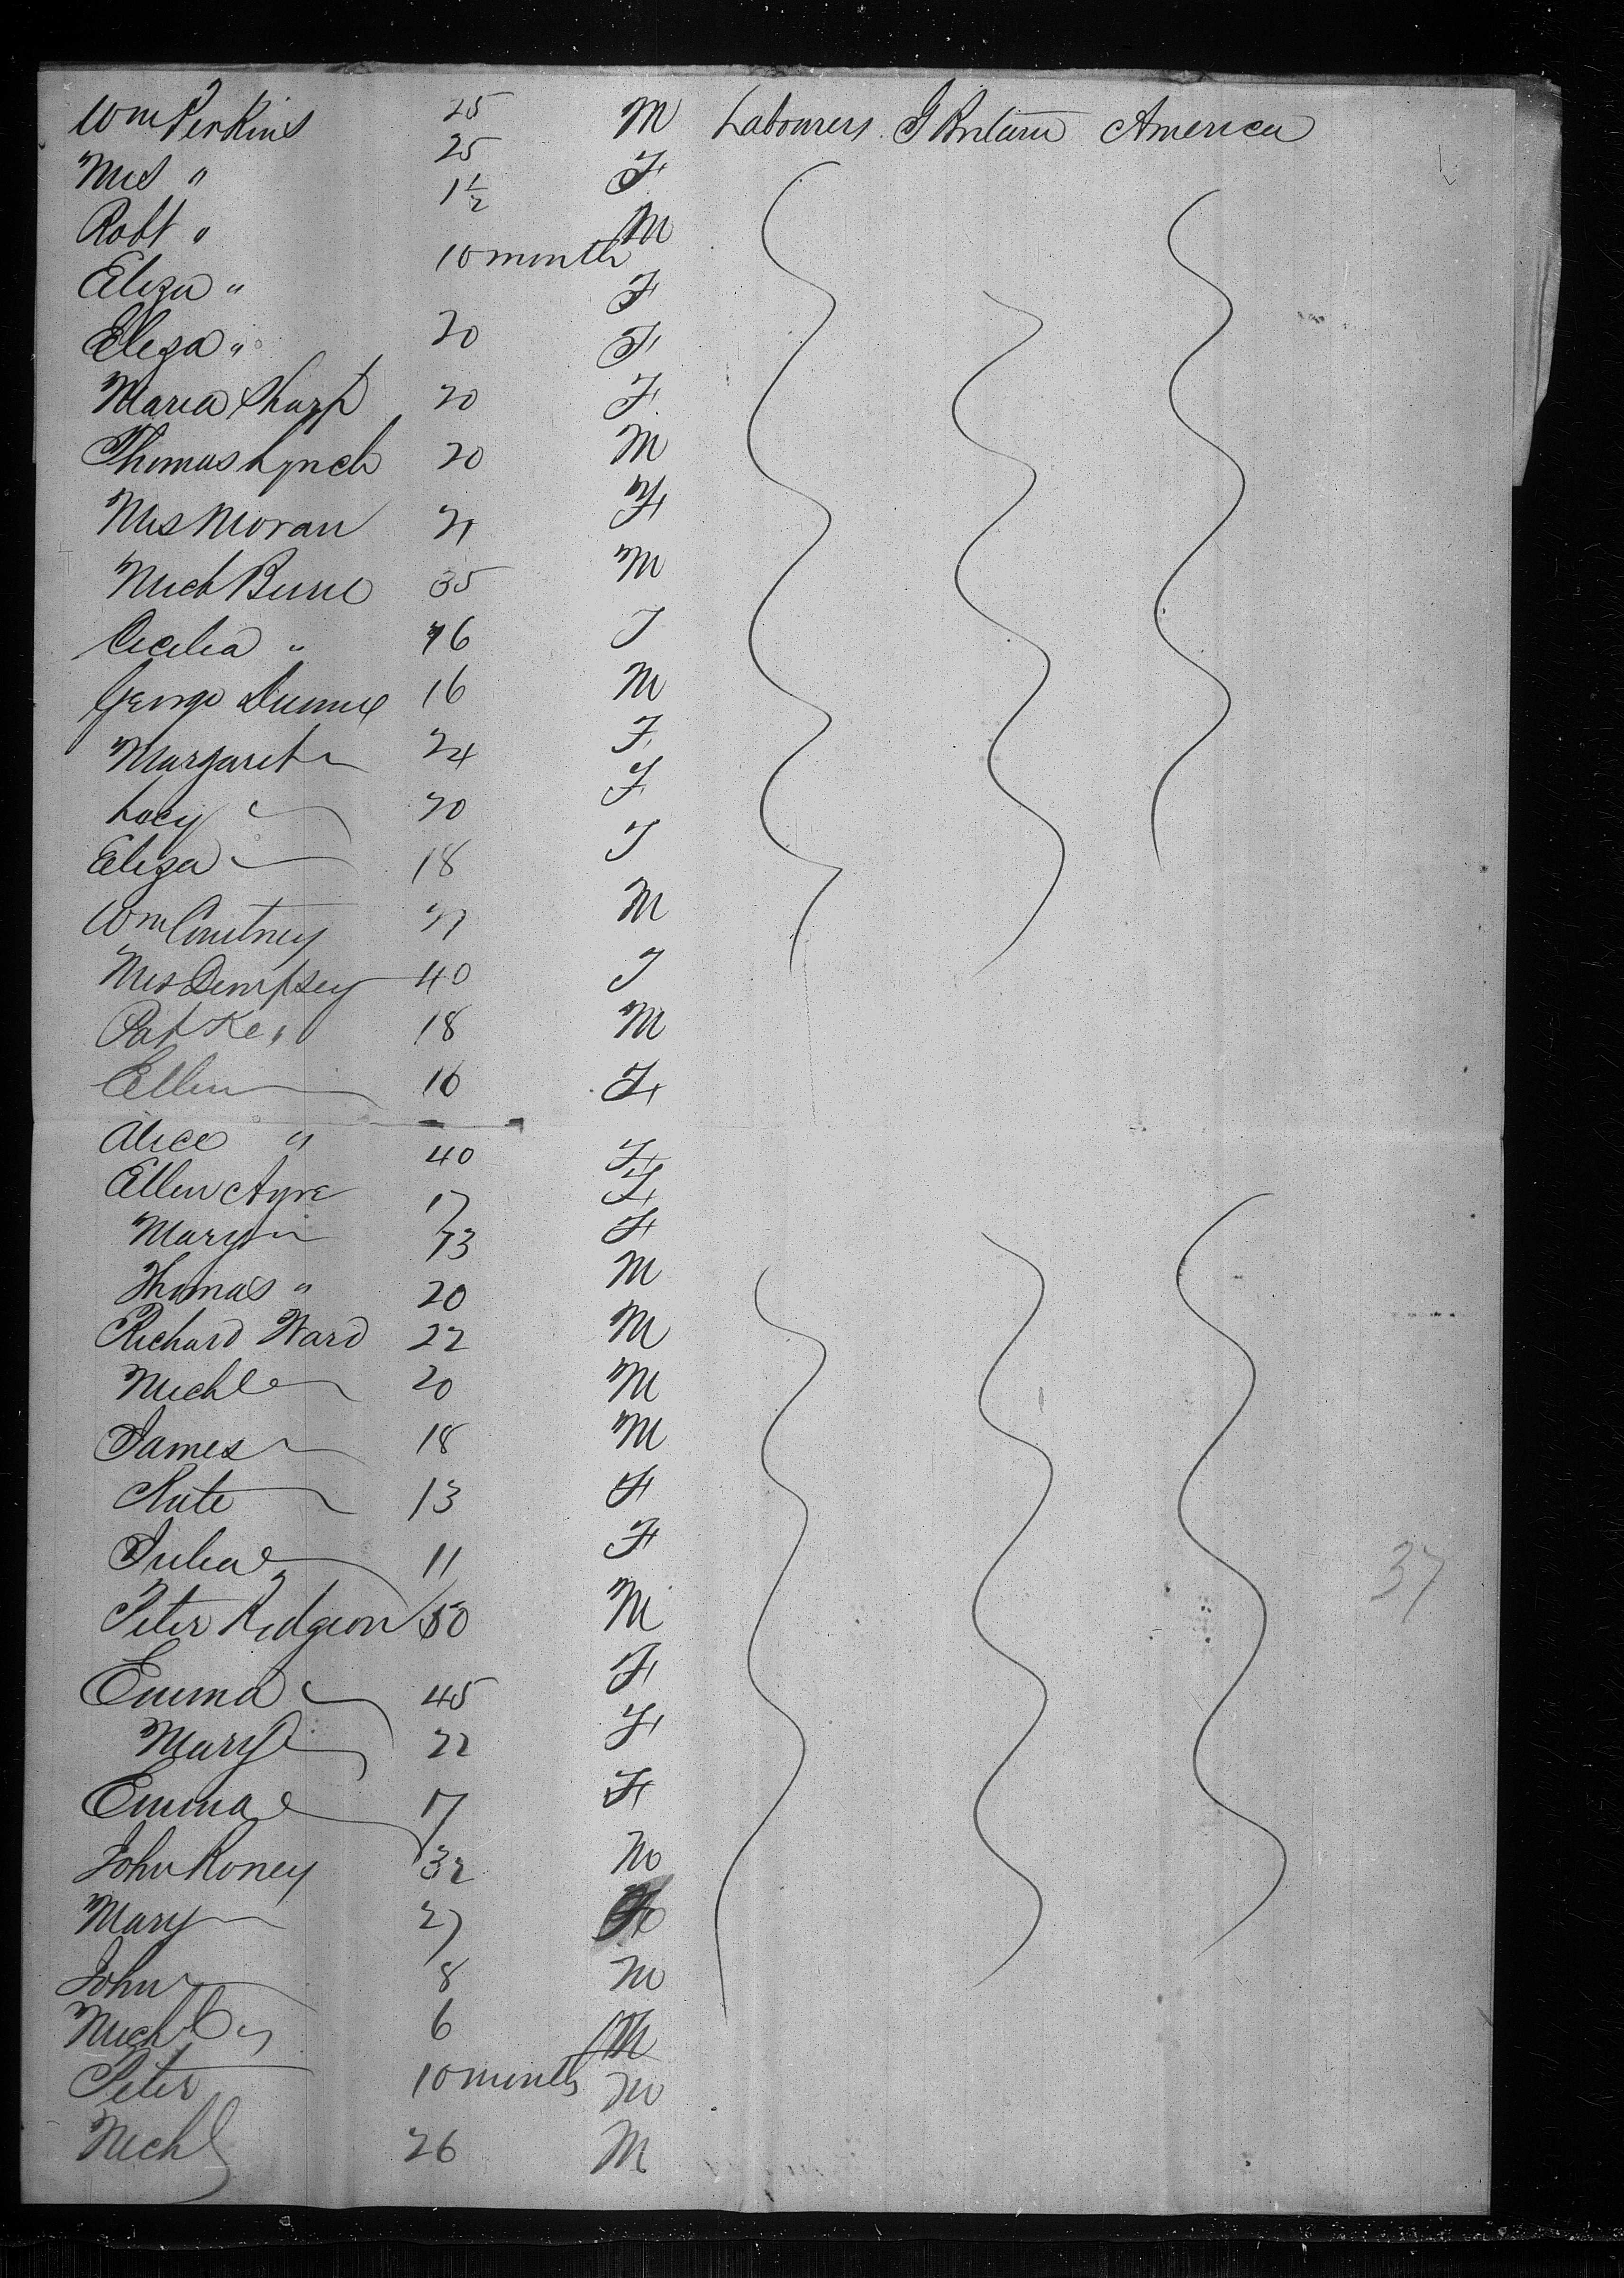 Wm Perkins 25 M Labourers G Britain America
Mrs " 25 F
Robt " 1 1/2 M
Eliza " 10 month F
Eliza " 20 F
Maria Sharp 20 F
Thomas Lynch 20 M
Mrs Moran 21 F
Mich Burne 35 M
Cecilia " 16 F
George Dunne 16 M
Margaret " 24 F
Lucy " 20 F
Eliza " 18 F
Wm Coutney 21 M
Mrs Dempsey 40 F
Pat Ke " 18 M
Ellen " 16 F
Alice " - F
Ellen Ayre 40 F
Mary " 17 F
Thomas " 13 M
Richard Ward 22 M
Michl " 20 M
James " 18 M
Kate " 13 F
Julia " 11 F
Peter Kidgeon 50 M
Emma " 45 F
Mary " 22 F
Emma " 17 F
John Roney 32 M
Mary " 27 F
John " 8 M
Michl " 6 M
Peter 10 months M
Michl 26 M
37